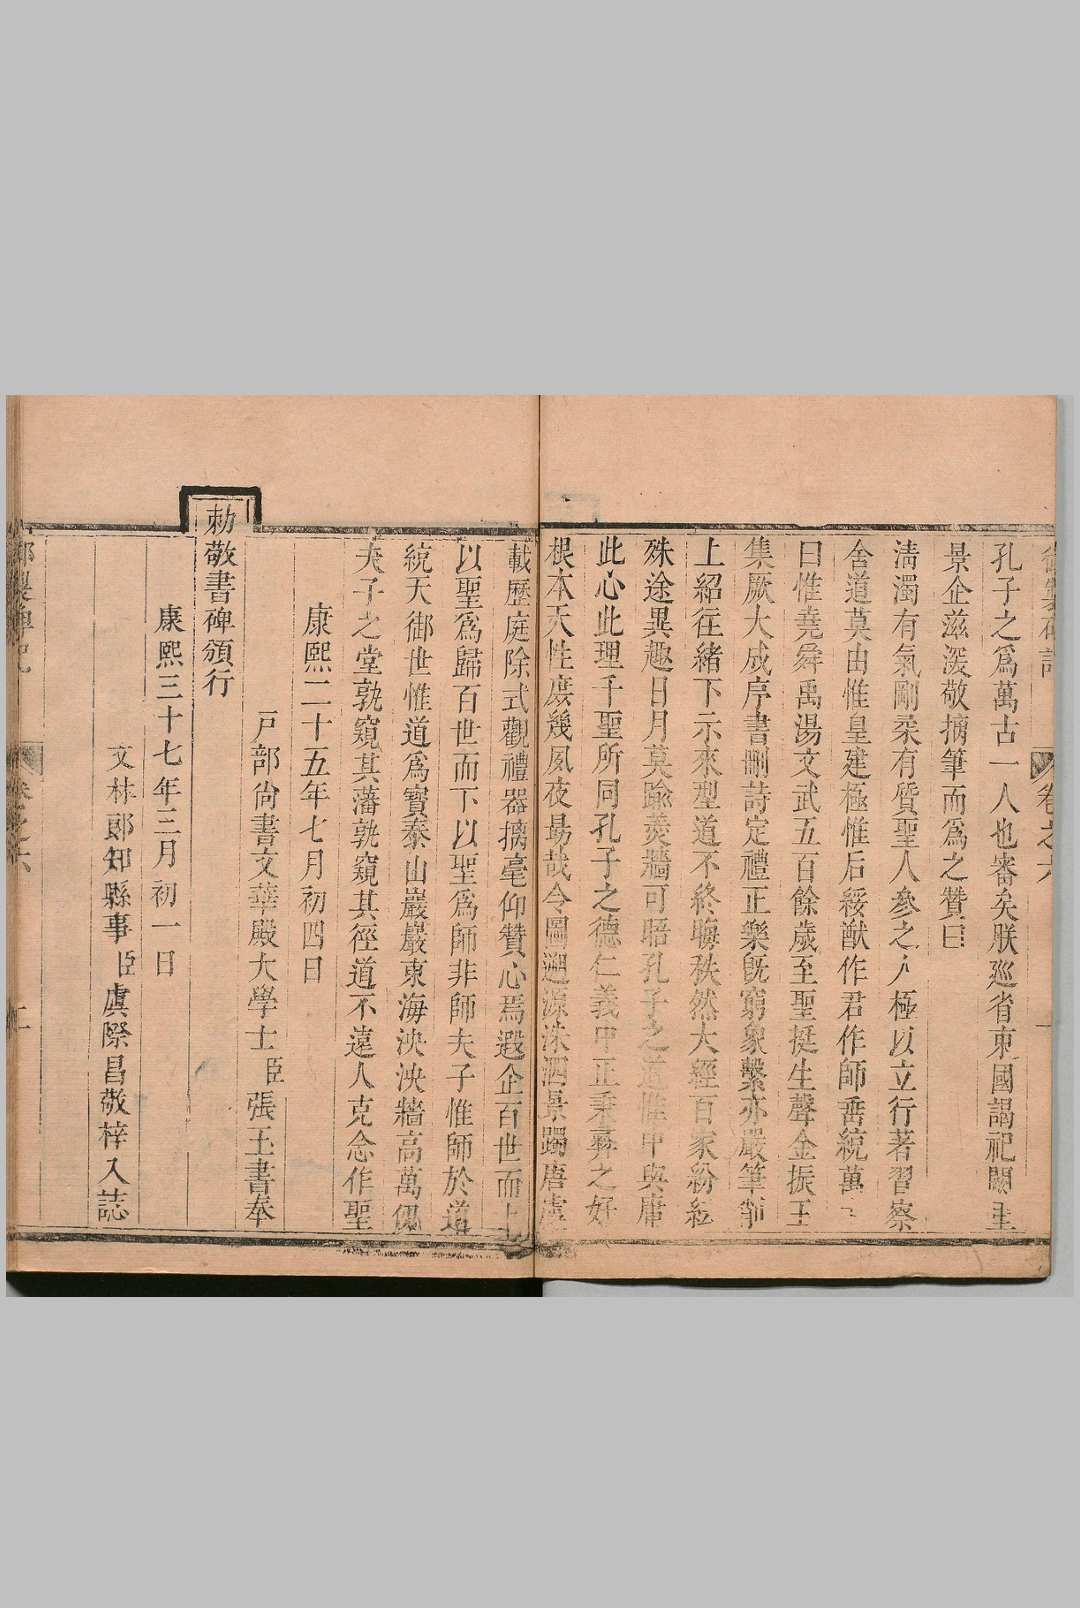 孔子之爲萬古一人也審矣朕廵省東國謁祀闕里
景企滋深敬摛筆而爲之贊曰
清濁有氣剛柔有質聖人參之人極以立行著習察
舍道莫由惟皇建極惟后綏猷作君作師垂統萬
曰惟堯舜禹湯文武五百餘歲至聖挺生聲金振玉
集厥大成序書刪詩定禮正樂旣窮象繫亦嚴筆削
上紹往緒下示來型道不終晦秩然大經百家紛紜
殊途異趣日月莫踰羮牆可晤孔子之道惟中與庸
此心此理千聖所同孔子之德仁義中正秉彝之好
根本天性庶幾夙夜勗哉今圖遡源洙泗景躅唐虞
載歷庭除式觀禮器摛毫仰贊心焉遐企百世而上
以聖爲歸百世而下以聖爲師非師夫子惟師於道
統天御世惟道爲寶泰山巖巖東海泱泱牆高萬仞
夫子之堂孰窺其藩孰窺其徑道不遠人克念作聖
康熙二十五年七月初四日
戶部尙書文華殿大學士臣張玉書奉
勅敬書碑頒行
康熙三十七年三月初一日
文林郞知縣事臣虞際昌敬梓入誌
卷之六